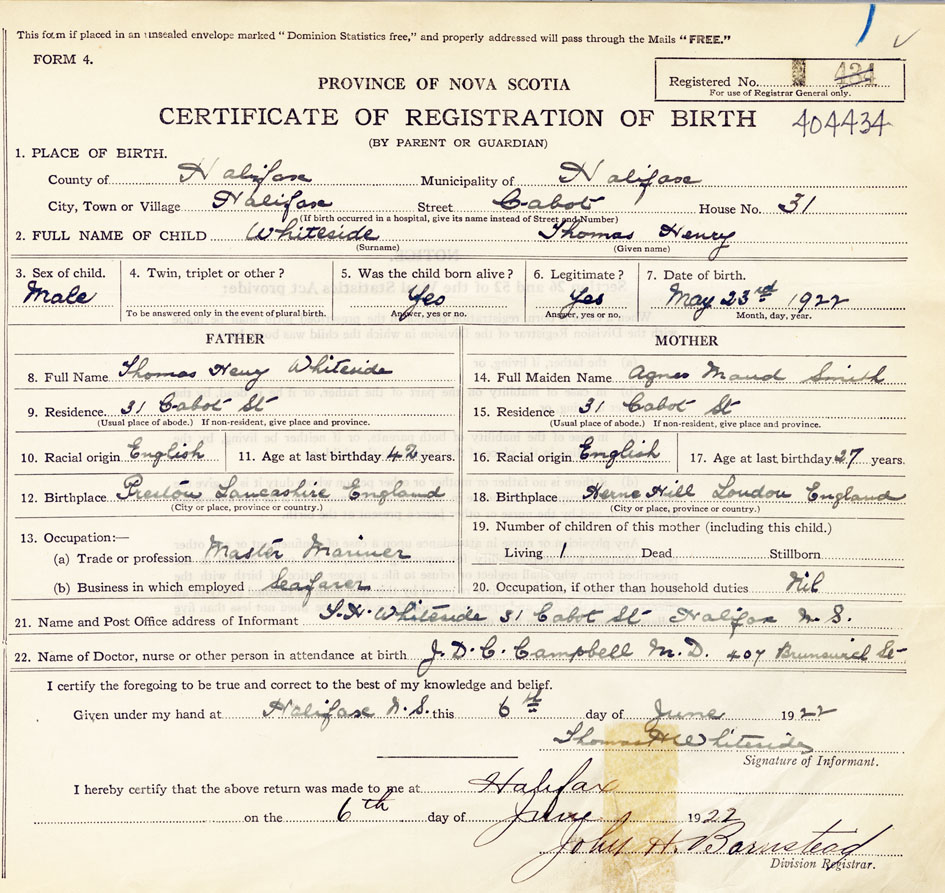 This form if placed in an unsealed envelope marked "Dominion Statistics free," and properly addressed will pass through the Mails "FREE."
FORM 4.
PROVINCE OF NOVA SCOTIA
Registered No. 434
For use of Registrar General only.
CERTIFICATE OF REGISTRATION OF BIRTH 404434
(BY PARENT OR GUARDIAN)
1. PLACE OF BIRTH.
County of Halifax Municipality of Halifax
City, Town or Village Halifax Street Cabot House No. 31
(If birth occurred in a hospital, give its name instead of Street and Number)
2. FULL NAME OF CHILD Whiteside Thomas Henry
(Surname) (Given name)
3. Sex of child. 4. Twin, triplet or other? 5. Was the child born alive? 6. Legitimate? 7. Date of birth.
Male Yes Yes May 23rd 1922
To be answered only in the event of plural birth. Answer, yes or no. Answer, yes or no. Month, day, year.
FATHER MOTHER
8. Full Name Thomas Henry Whiteside 14. Full Maiden Name Agnes Maud Smith
9. Residence. 31 Cabot St 15. Residence. 31 Cabot St
(Usual place of abode.) If non-resident, give place and province. (Usual place of abode.) If non-resident, give place and province.
10. Racial origin English 11. Age at last birthday 42 years. 16. Racial origin English 17. Age at last birthday 27 years.
12. Birthplace Preston Lancashire England 18. Birthplace Herne Hill London England
(City or place, province or country.) (City or place, province or country.)
13. Occupation:— 19. Number of children of this mother (including this child.)
(a) Trade or profession Master Mariner Living 1 Dead Stillborn
(b) Business in which employed Seafarer 20. Occupation, if other than household duties Nil
21. Name and Post Office address of Informant T. H. Whiteside 31 Cabot St Halifax N.S.
22. Name of Doctor, nurse or other person in attendance at birth J. D. C. Campbell M.D. 407 Brunswick St
I certify the foregoing to be true and correct to the best of my knowledge and belief.
Given under my hand at Halifax N.S. this 6th day of June 1922
Thomas H Whiteside
Signature of Informant.
I hereby certify that the above return was made to me at Halifax
on the 6th day of June 1922
John H. Barnstead
Division Registrar.